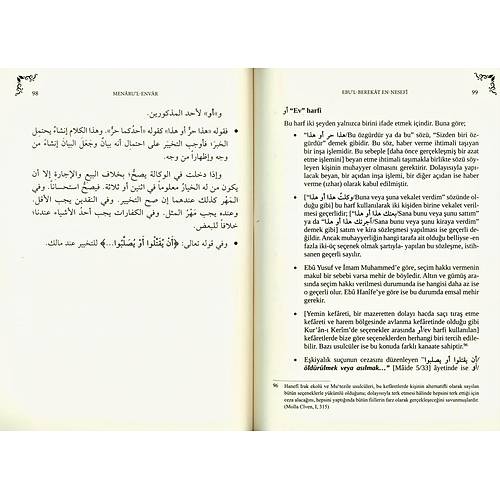 98 MENÂRU'L-ENVÂR
و«أو» لأحد المذكورين.
• فقوله «هذا حرٌّ أو هذا» كقوله «أحدُكما حرٌّ». وهذا الكلام إنشاءٌ يحتمِل
الخبرَ؛ فأوجب التخيّر على احتمال أنه بيانٌ وجُعل البيانُ إنشاءً من
وجه وإظهاراً من وجه.
وإذا دخلت في الوكالة يصحُّ؛ بخلاف البيع والإجارة إلا أن
يكون من له الخيارُ معلوماً في اثنين أو ثلاثة. فيصحُّ استحساناً. وفي
المَهْر كذلك عندهما إن صح التخير. وفي النقدين يجب الأقل.
وعنده يجب مَهْرُ المثل. وفي الكفارات يجب أحدُ الأشياء عندنا؛
خلافاً للبعض.
• وفي قوله تعالى: ﴿أَن يُقَتَّلُوا أَوْ يُصَلَّبُوا...﴾ للتخيير عند مالك.
EBU'L-BEREKÂT EN-NESEFÎ 99
أو “Ev” harfi
Bu harf iki şeyden yalnızca birini ifade etmek içindir. Buna göre;
• “هذا حر أو هذا/Bu özgürdür ya da bu” sözü, “Sizden biri öz-
gürdür” demek gibidir. Bu söz, haber verme ihtimali taşıyan
bir inşa işlemidir. Bu sebeple [daha önce gerçekleşmiş bir azat
etme işlemini] beyan etme ihtimali taşımakla birlikte sözü söy-
leyen kişinin muhayyer olmasını gerektirir. Dolayısıyla yapı-
lacak beyan, bir açıdan inşa işlemi, bir diğer açıdan ise haber
verme (ızhar) olarak kabul edilmiştir.
• [“وكلتُ هذا أو هذا/Buna veya şuna vekalet verdim” sözünde
olduğu gibi] bu harf kullanılarak iki kişiden birine vekalet veril-
mesi geçerlidir; [“بعتك هذا أو هذا/Sana bunu veya şunu satım”
ya da “آجرتك هذا أو هذا/Sana bunu veya şunu kiraya verdim”
demek gibi] satım ve kira sözleşmesi yapılması ise geçersizdir.
Ancak muhayyerliğin hangi tarafa ait olduğu belliyse -en
fazla iki-üç seçenek olmak şartıyla- yapılan bu sözleşme, istih-
sanen geçerli sayılır.
• Ebû Yusuf ve İmam Muhammed’e göre, seçim hakkı vermenin
makul bir sebebi varsa mehir de böyledir. Altın ve gümüş ara-
sında seçim hakkı verilmesi durumunda ise hangisi daha az ise
o geçerli olur. Ebû Hanîfe’ye göre ise bu durumda emsal mehir
gerekir.
• [Yemin kefâreti, bir mazeretten dolayı hacda saçı tıraş etme
kefâreti ve harem bölgesinde avlanma kefâretinde olduğu gibi
Kur’ân-ı Kerîm’de seçenekler arasında أو/ev harfi kullanılan]
kefâretlerde bize göre bu seçeneklerden birini tercih etmek ge-
reklidir. Bazı usulcüler ise bu konuda farklı kanaate sahiptir.96
• Eşkiyalık suçunun cezasını düzenleyen “أن يقتلوا أو يصلبوا/
öldürülmek veya asılmak...” [Mâide 5/33] âyetinde ise أو/
96 Hanefî Irak ekolü ve Mu‘tezile usulcüleri, bu kefâretlerde kişinin alternatifli olarak sayılan
bütün seçeneklerle yükümlü olduğunu; dolayısıyla terk etmesi hâlinde hepsini terk ettiği için
ceza alacağını, hepsini yaptığında bütün fiillerin farz olarak gerçekleşeceğini savunmuşlardır.
(Molla Cîven, I, 315)